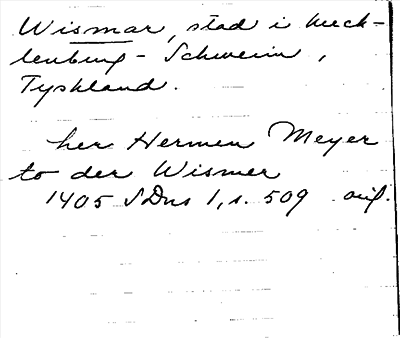 Wismar, stad i Meck-
lenburg - Schwerin,
Tyskland.
her Hermen Meyer
to der Wismer
1405 SDns 1, s. 509 orig.